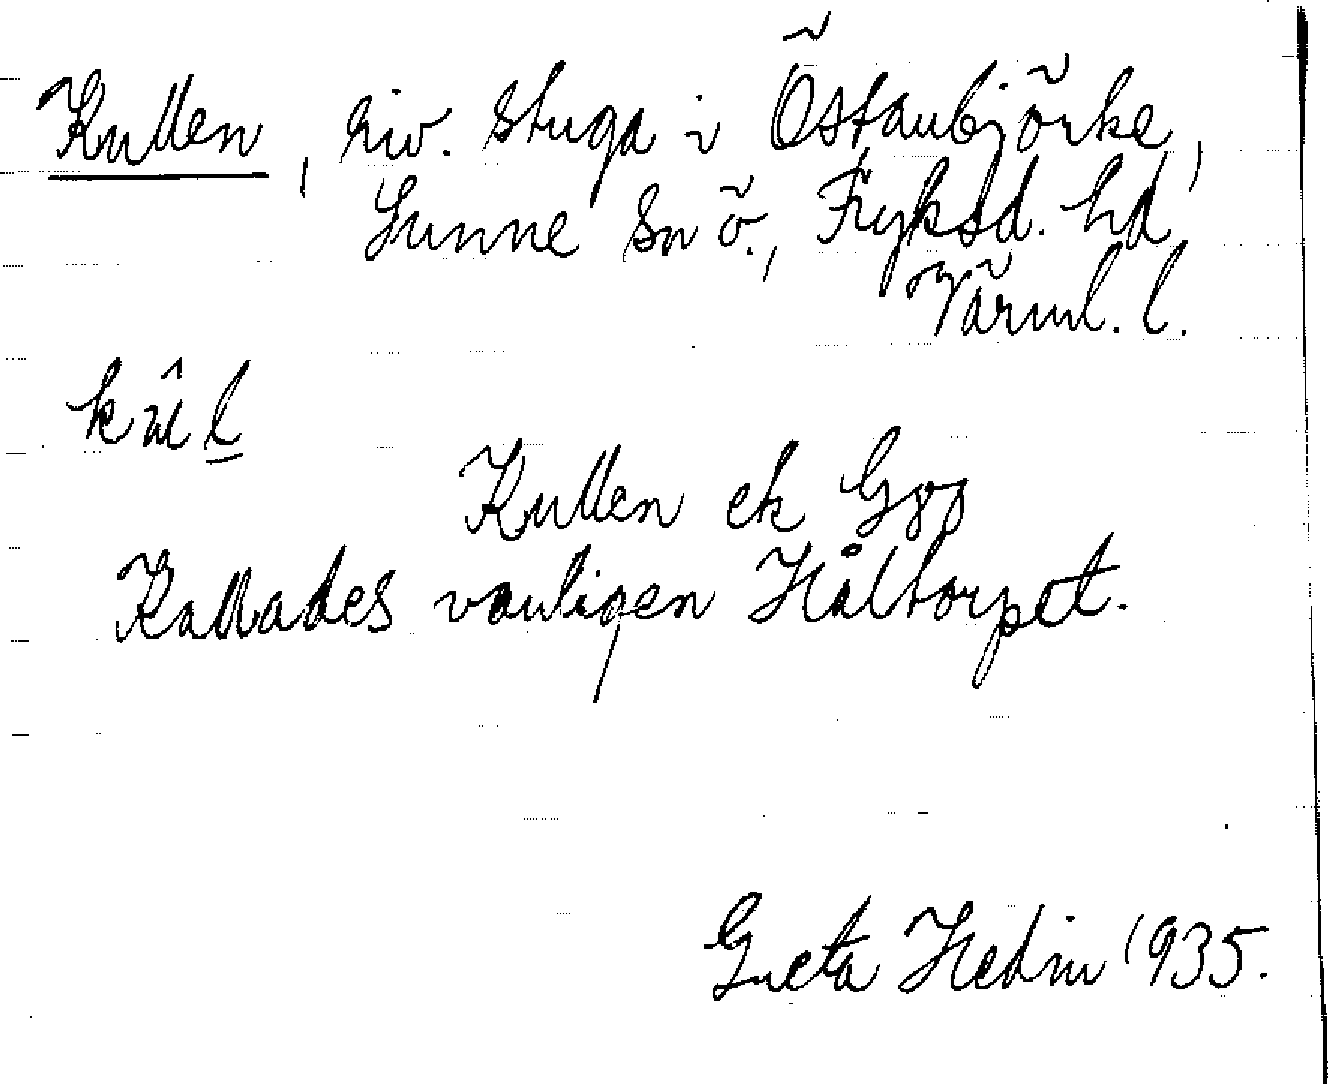 Kullen, riv. stuga i Östanbjörke,
Sunne sn ö., Fryksd. hd,
Värml. l.
kûl
Kullen ek G88
Kallades vanligen Håltorpet.
Greta Hedin 1935.